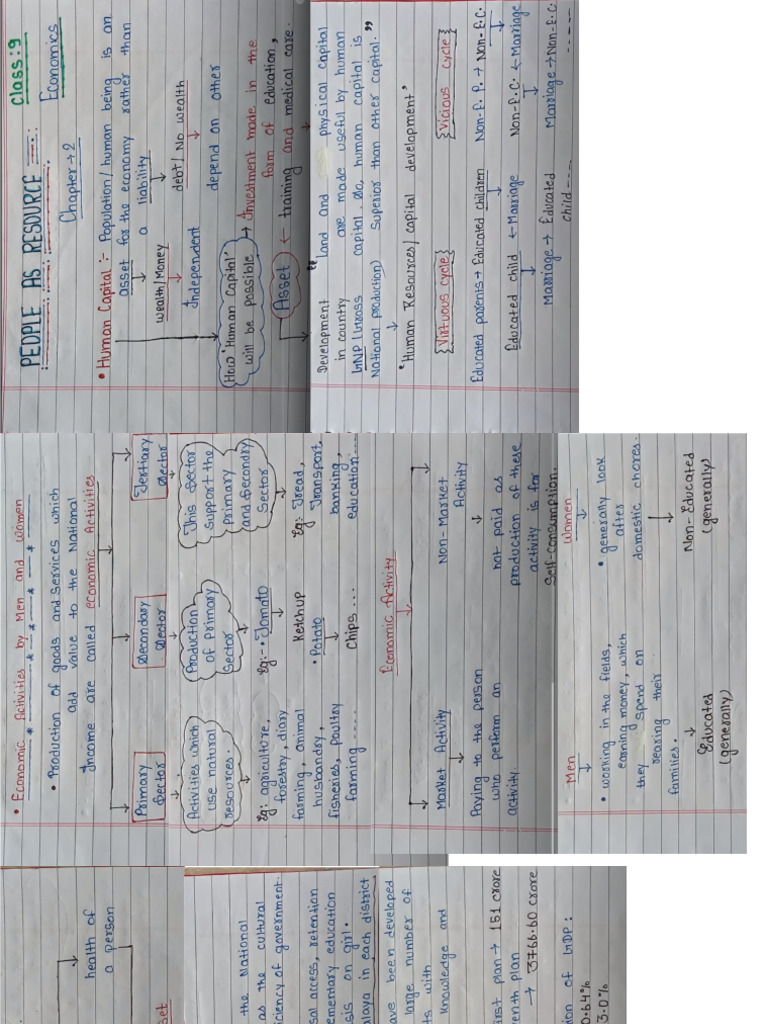 Class:9
PEOPLE AS RESOURCE
Economics
Chapter→2
• Human Capital :- Population/human being is an
asset for the economy rather than
a liability
wealth/Money
debt/No wealth
Independent
depend on other
How 'Human Capital'
will be possible
→ Investment made in the
form of education,
training and medical care.
Asset
Development
in country
GNP (Gross
National production)
" land and physical capital
are made useful by human
capital. So, human capital is
superior than other capital."
"Human Resources/capital development"
{Virtuous cycle}
{Vicious cycle}
Educated parents → Educated children
Non-E. P. → Non-E.C.
Educated child ← Marriage
Non-E.C. ← Marriage
Marriage → Educated
child ----
Marriage → Non-E.C.
-----
• Economic Activities by Men and Women
• Production of goods and services which
add value to the National
Income are called economic Activities
Primary
Sector
Secondary
Sector
Tertiary
Sector
Activities which
use natural
resources.
Production
of Primary
Sector
This Sector
support the
primary
and Secondry
Sector
Eg: agriculture,
forestry, diary
farming, animal
husbandry,
fisheries, poultry
farming ....
Eg:- • Tomato
Ketchup
• Potato
Chips ...
Eg: Tread,
Transport,
banking,
education---
Economic Activity
Market Activity
Non-Market
Activity
Paying to the person
who perform an
activity.
not paid as
production of these
activity is for
self-consumption.
Men
Women
• working in the fields,
earning money, which
they spend on
rearing their
families.
• generally look
after
domestic chores.
Educated
(generally)
Non-Educated
(generally)
health of
a person
set
the National
as the cultural
ciency of government.
sal access, retention
ementary education
sis on girl.
alaya in each district
ave been developed
large number of
ts with
knowledge and
irst plan → 151 crore
venth plan
→ 3766.60 crore
ion of GDP:
0.64%
3.0%